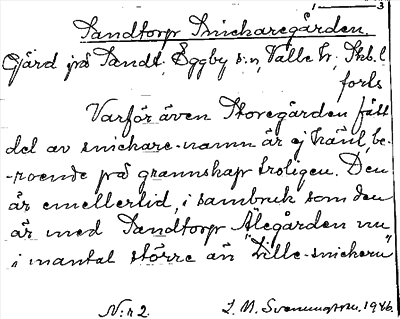 1 — 3
Sandtorp Snickaregården.
Gård på Sandt, Eggby s:n, Valle hr, Skb. l.
forts
Varför även Storegården fått
del av snickare-namn är ej känt, be-
-roende på grannskap troligen. Den
är emellertid, i sambruk som den
är med Sandtorp Ålegården nu
i mantal större än "Lille-snickern"
N:r 2. L. M. Svenungsson, 1946.